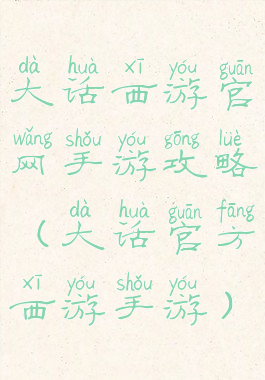 dà huà xī yóu guān
大话西游官
wǎng shǒu yóu gōng lüè
网手游攻略
dà huà guān fāng
（大话官方
xī yóu shǒu yóu
西游手游）